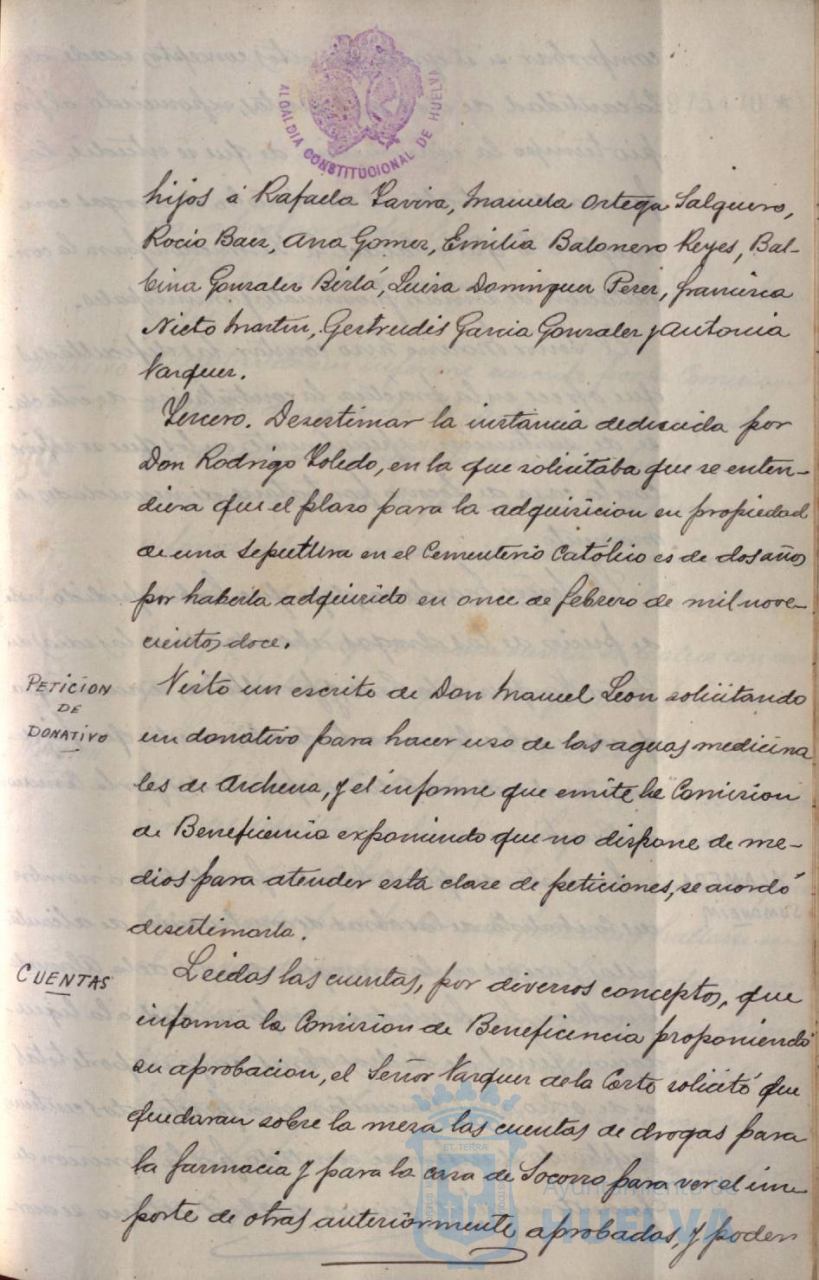 ALCALDIA CONSTITUCIONAL DE HUELVA
hijos á Rafaela Tavira, Manuela Ortega Salguero,
Rocio Baez, Ana Gomez, Emilia Balonero Reyes, Bal-
bina Gonzalez Birlá, Luisa Dominguez Perez, francisca
Nieto Martin, Gertrudis Garcia Gonzalez y Antonia
Vazquez.
Tercero. Desestimar la instancia deducida por
Don Rodrigo Toledo, en la que solicitaba que se enten-
diera que el plazo para la adquisicion en propiedad
de una sepultura en el Cementerio Católico es de dos años
por haberla adquirido en once de febrero de mil nove-
cientos doce.
PETICION
DE
DONATIVO
Visto un escrito de Don Manuel Leon solicitando
un donativo para hacer uso de las aguas medicina
les de Archena, y el informe que emite la Comision
de Beneficencia exponiendo que no dispone de me-
dios para atender esta clase de peticiones, se acordó
desestimarla.
CUENTAS
Leidas las cuentas, por diversos conceptos, que
informa la Comision de Beneficencia proponiendo
su aprobacion, el Señor Vazquez de la Corte solicitó que
quedaran sobre la mesa las cuentas de drogas para
la farmacia y para la casa de Socorro para ver el im
porte de otras anteriormente aprobadas, y poder
Ayuntamiento de
HUELVA